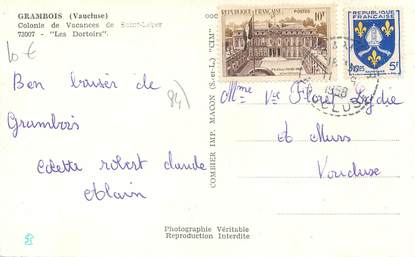 GRAMBOIS (Vaucluse)
Colonie de Vacances de Saint-Leger
72007 - "Les Dortoirs"
10 €
84)
Bon baiser de
Grambois
Colette robert claude
Alain
COMBIER IMP. MACON (S.-et-L.) "CIM"
RÉPUBLIQUE FRANÇAISE
POSTES
10F
REPUBLIQUE
FRANÇAISE
5F
1958
Mme Vve Floret Lydie
à Murs
Vaucluse
Photographie Véritable
Reproduction Interdite